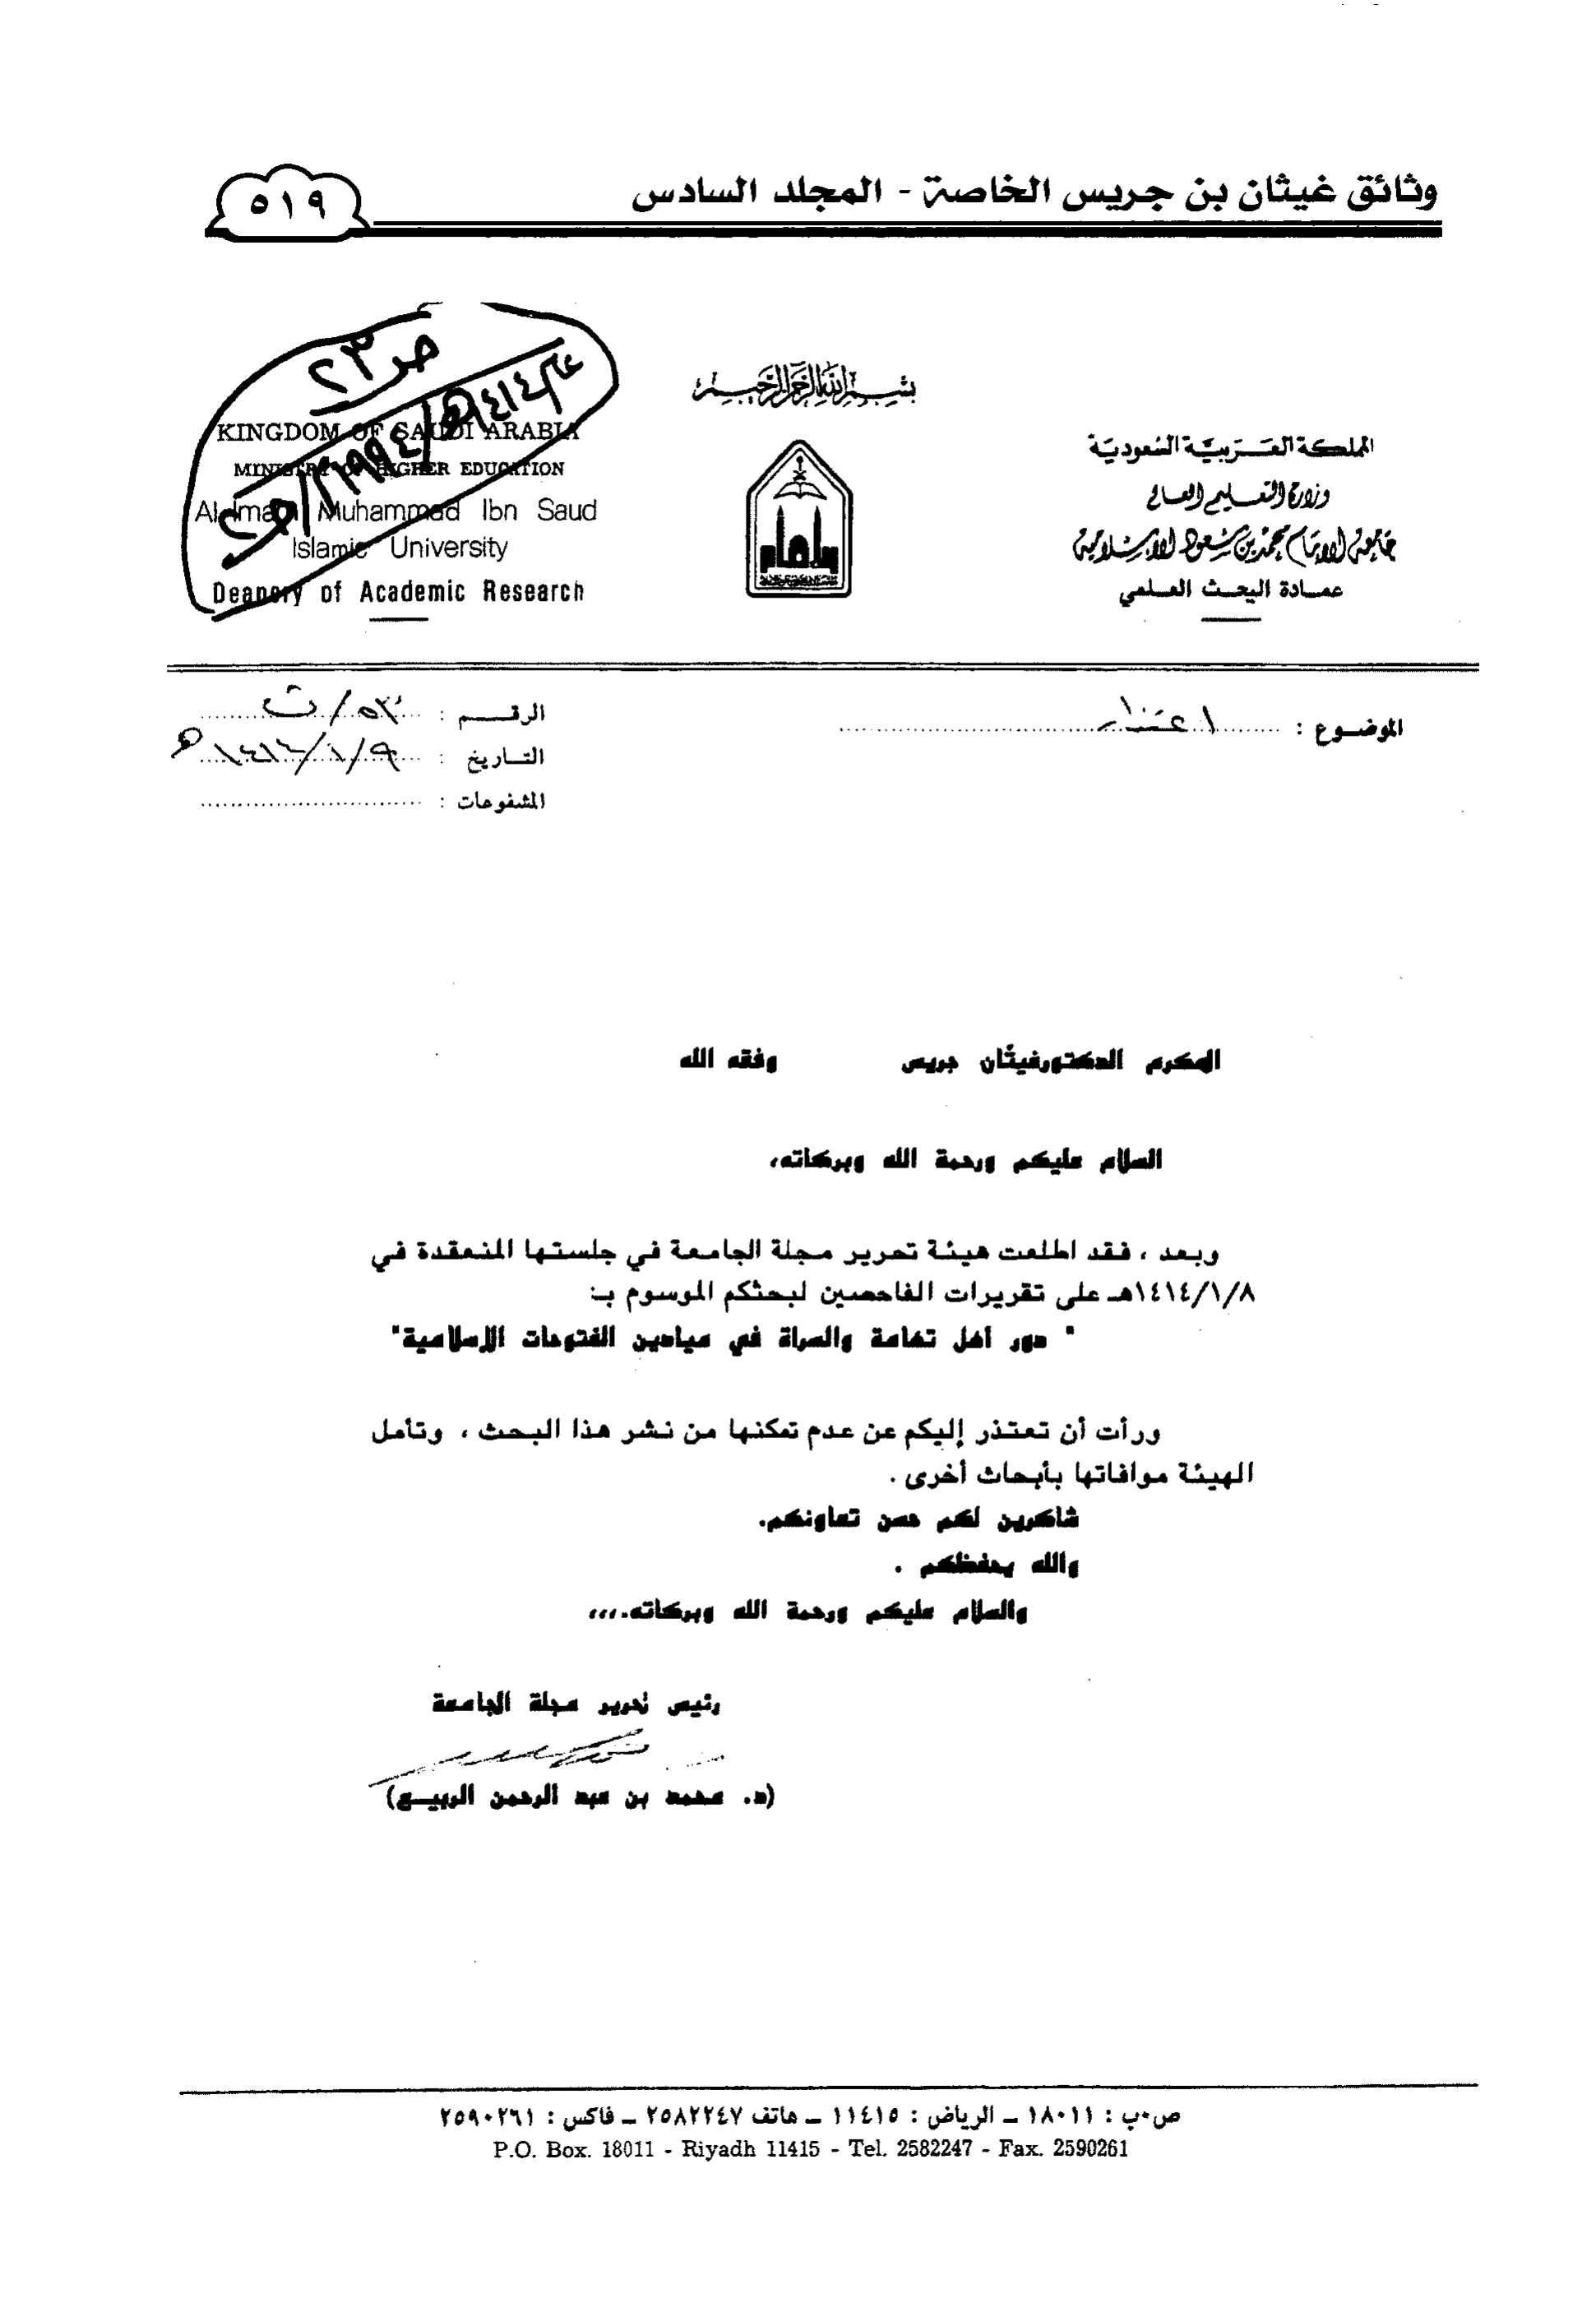 وثائق غيثان بن جريس الخاصة - المجلد السادس
٥١٩
ص ٢٣
بسم الله الرحمن الرحيم
KINGDOM OF SAUDI ARABIA
MINISTRY OF HIGHER EDUCATION
Al-Imam Muhammad Ibn Saud
Islamic University
Deanery of Academic Research
المملكة العربية السعودية
وزارة التعليم العالي
جامعة الإمام محمد بن سعود الإسلامية
عمادة البحث العلمي
الموضوع : اعتذار
الرقم : /ت
التاريخ : ١/٩/
المشفوعات :
المكرم الدكتور غيثان جريس وفقه الله
السلام عليكم ورحمة الله وبركاته،
وبعد ، فقد اطلعت هيئة تحرير مجلة الجامعة في جلستها المنعقدة في
١٤١٤/١/٨هـ على تقريرات الفاحصين لبحثكم الموسوم بـ:
" دور أهل تهامة والسراة في ميادين الفتوحات الإسلامية"
ورأت أن تعتذر إليكم عن عدم تمكنها من نشر هذا البحث ، وتأمل
الهيئة موافاتها بأبحاث أخرى .
شاكرين لكم حسن تعاونكم.
والله يحفظكم .
والسلام عليكم ورحمة الله وبركاته،،،،
رئيس تحرير مجلة الجامعة
(د. محمد بن عبد الرحمن الربيـع)
ص.ب : ١٨٠١١ ـ الرياض : ١١٤١٥ ـ هاتف ٢٥٨٢٢٤٧ ـ فاكس : ٢٥٩٠٢٦١
P.O. Box. 18011 - Riyadh 11415 - Tel. 2582247 - Fax. 2590261